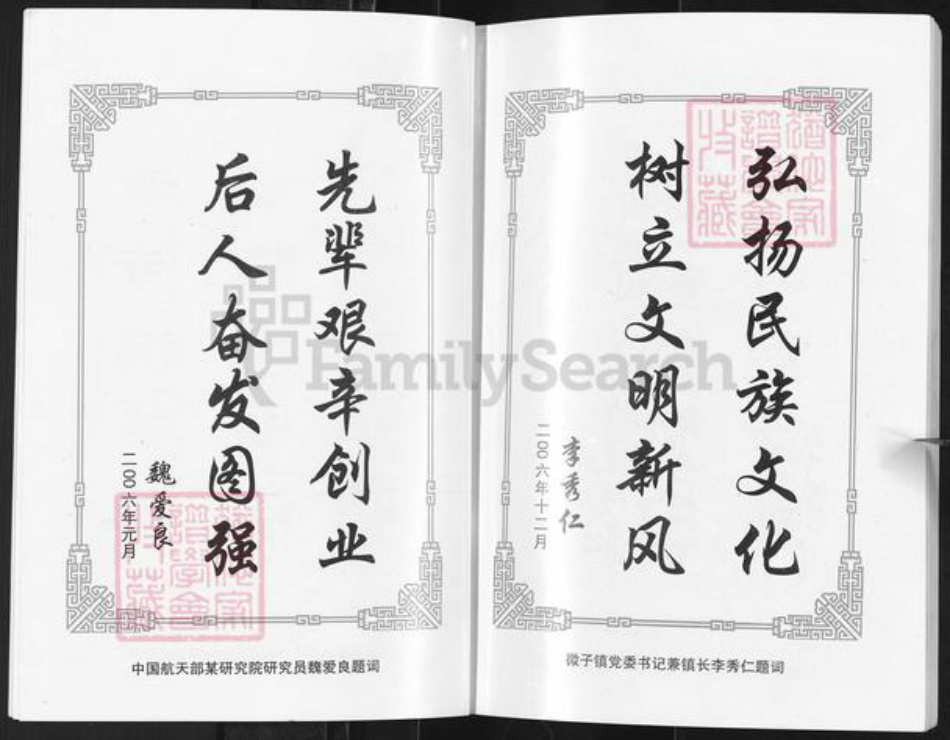 弘扬民族文化
树立文明新风
李秀仁
二〇〇六年十二月
微子镇党委书记兼镇长李秀仁题词
先辈艰辛创业
后人奋发图强
魏爱良
二〇〇六年元月
中国航天部某研究院研究员魏爱良题词
FamilySearch